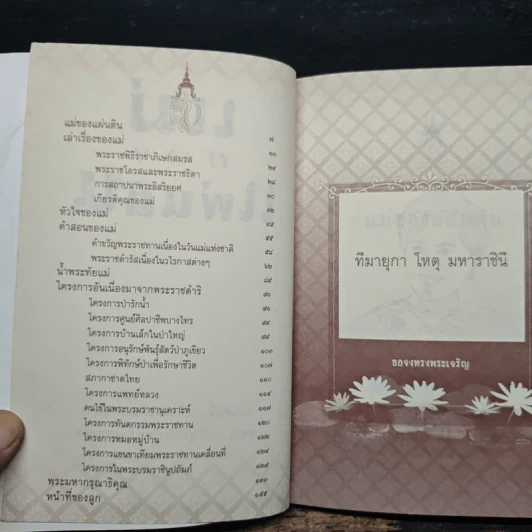 แม่ของแผ่นดิน ๗
เล่าเรื่องของแม่ ๑๓
พระราชพิธีราชาภิเษกสมรส ๒๔
พระราชโอรสและพระราชธิดา ๒๘
การสถาปนาพระอิสริยยศ ๓๐
เกียรติคุณของแม่ ๓๒
หัวใจของแม่ ๔๙
คำสอนของแม่ ๕๕
คำขวัญพระราชทานเนื่องในวันแม่แห่งชาติ ๕๘
พระราชดำรัสเนื่องในวโรกาสต่างๆ ๖๒
น้ำพระทัยแม่ ๘๙
โครงการอันเนื่องมาจากพระราชดำริ ๙๐
โครงการป่ารักน้ำ
โครงการศูนย์ศิลปาชีพบางไทร
โครงการบ้านเล็กในป่าใหญ่
โครงการอนุรักษ์พันธุ์สัตว์ป่าภูเขียว ๑๐๓
โครงการพิทักษ์ป่าเพื่อรักษาชีวิต ๑๐๗
สภากาชาดไทย ๑๑๐
โครงการแพทย์หลวง ๑๑๔
คนไข้ในพระบรมราชานุเคราะห์ ๑๑๗
โครงการทันตกรรมพระราชทาน ๑๒๐
โครงการหมอหมู่บ้าน ๑๒๒
โครงการแขนขาเทียมพระราชทานเคลื่อนที่ ๑๒๔
โครงการในพระบรมราชินูปถัมภ์ ๑๒๕
พระมหากรุณาธิคุณ ๑๓๓
หน้าที่ของลูก ๑๕๕
ทีฆายุกา โหตุ มหาราชินี
ขอจงทรงพระเจริญ